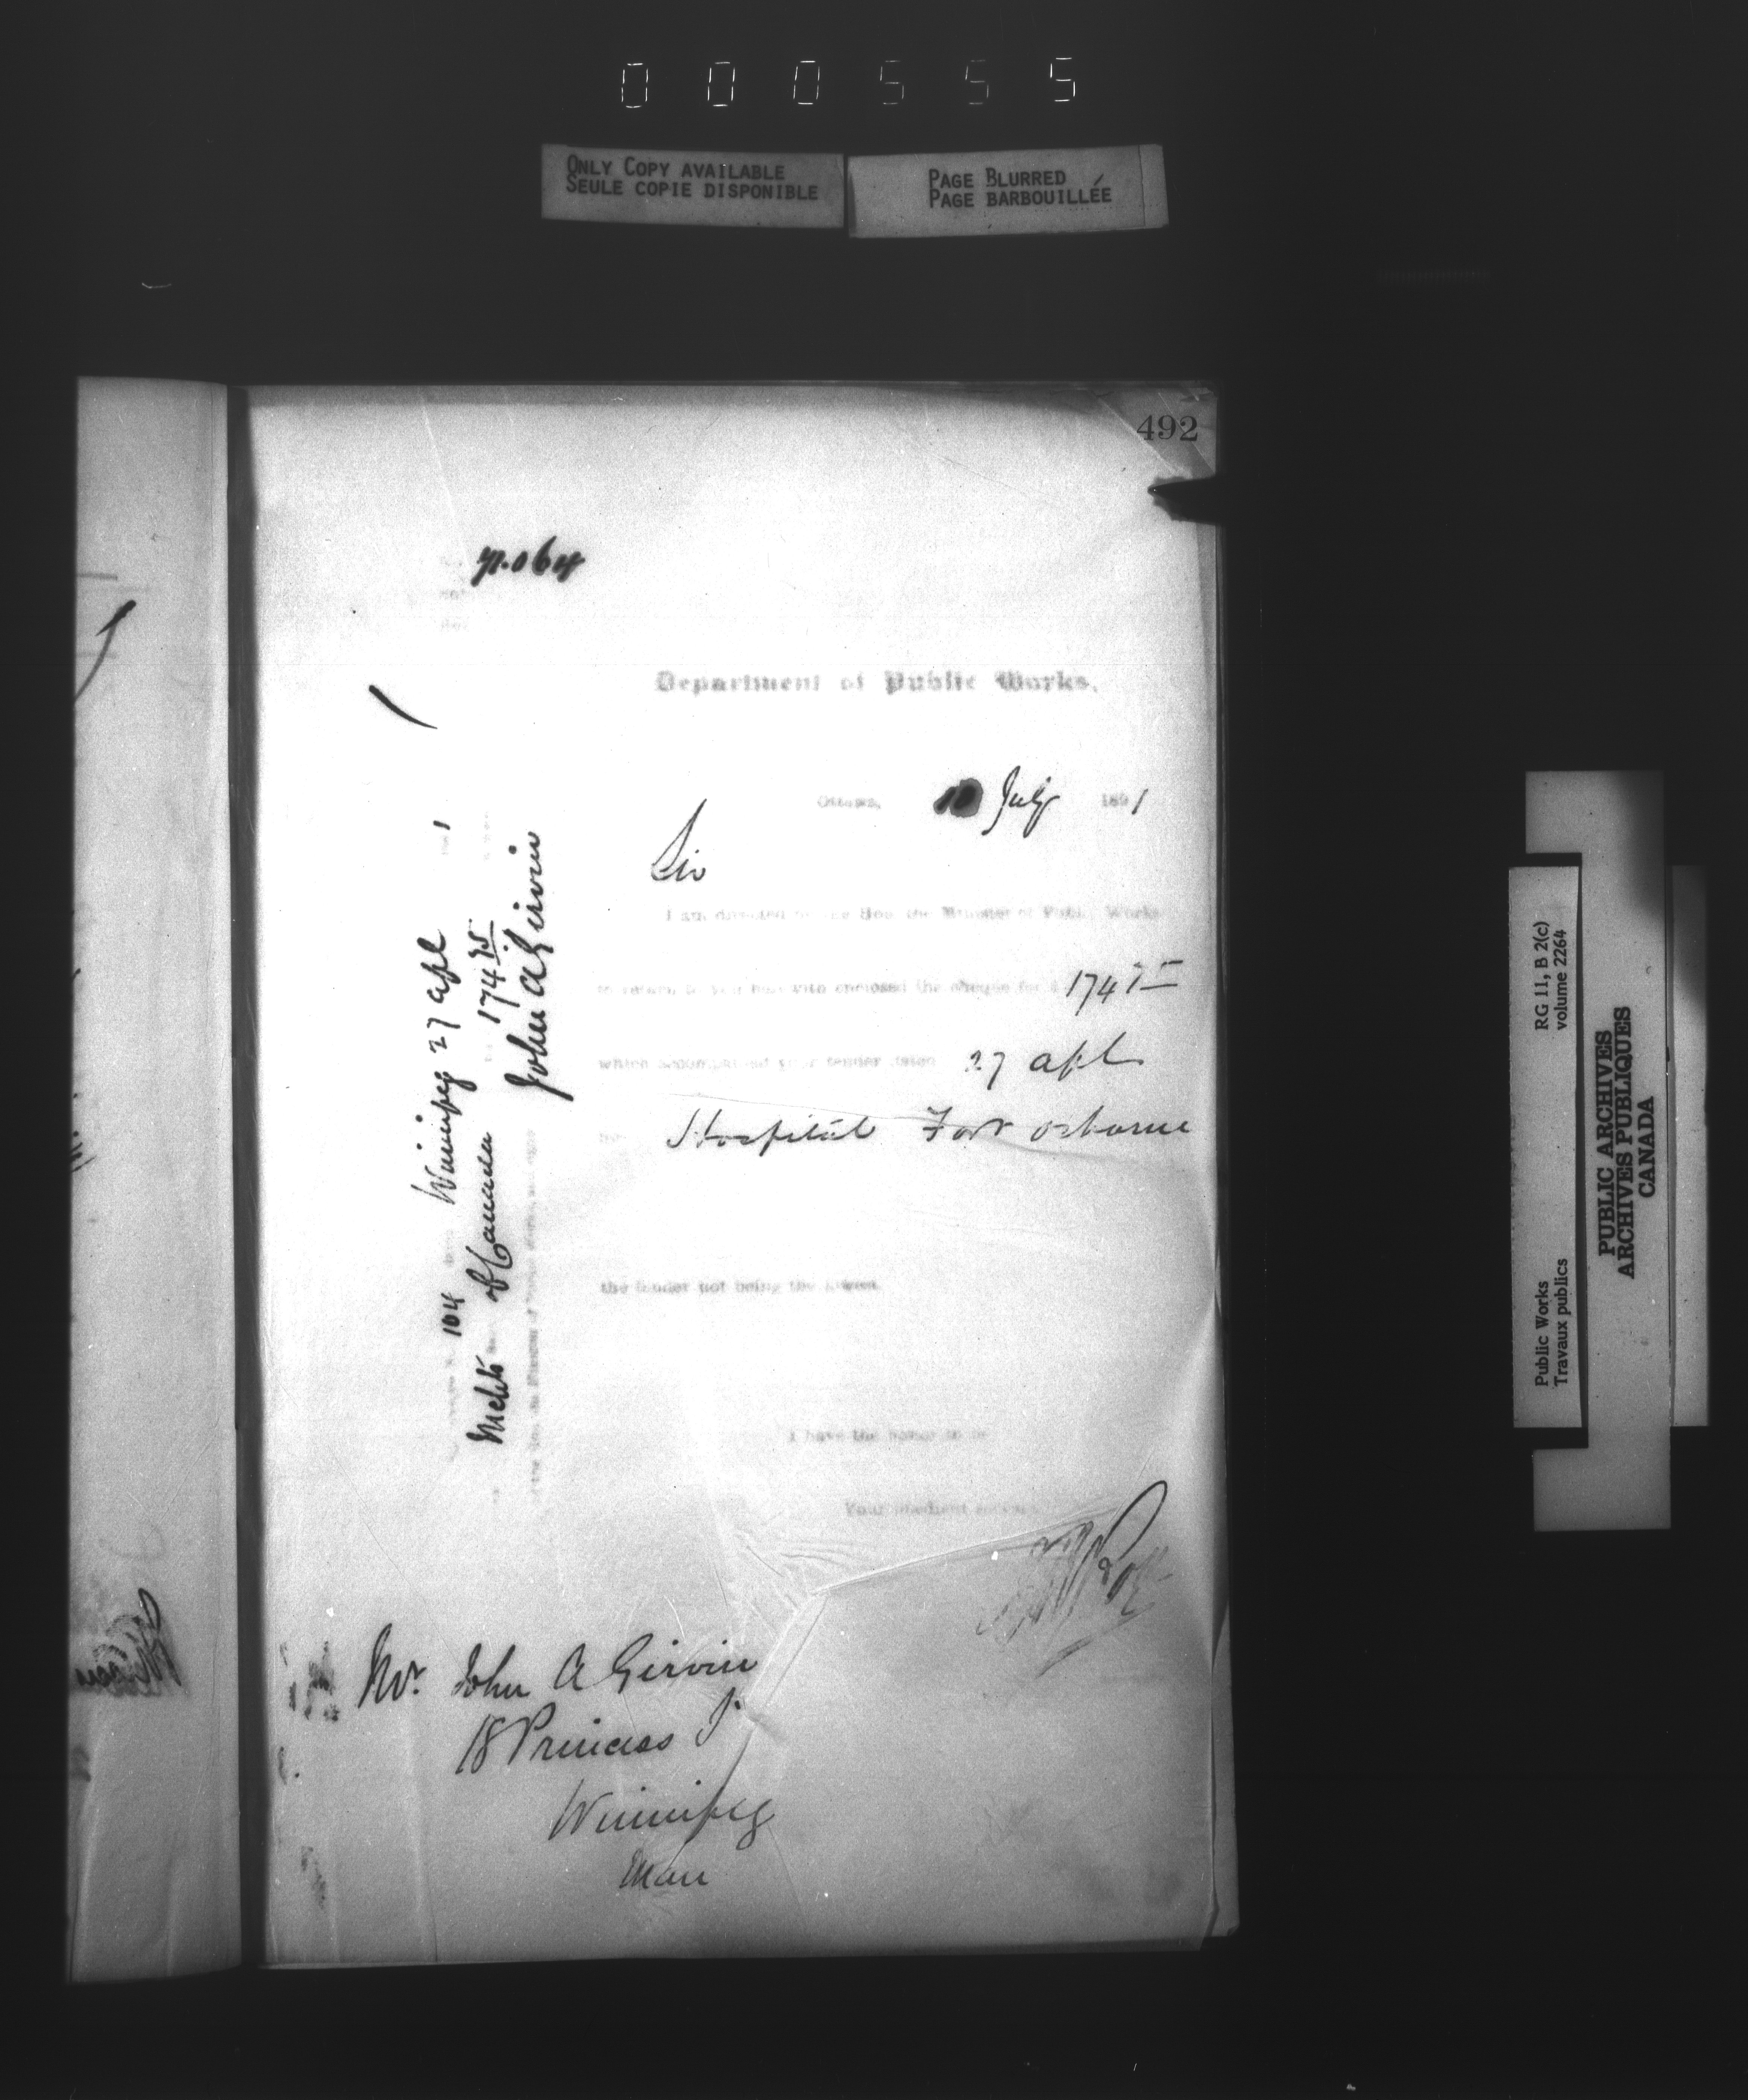 000555
ONLY COPY AVAILABLE
SEULE COPIE DISPONIBLE
PAGE BLURRED
PAGE BARBOUILLÉE
492
Department of Public Works.
Ottawa, 10 July 1891
Sir
I am directed by the Hon. the Minister of Public Works
to return to you herewith enclosed the cheque for $ 174
which accompanied your tender dated 27 Apl
Hospital Fort Osborne
the tender not being the lowest.
I have the honor to be
Your obedient servant
Mr. John A Girvin
18 Princess St
Winnipeg
Man
104 Winnipeg 27 Apl 1
174 75
John A Girvin
Public Works
Travaux publics
RG 11, B 2(c)
volume 2264
PUBLIC ARCHIVES
ARCHIVES PUBLIQUES
CANADA